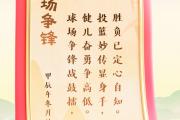 场争锋
胜负已定心自知。
投篮妙传显身手，
健儿奋勇争高低。
球场争锋战鼓擂，
甲辰年冬月